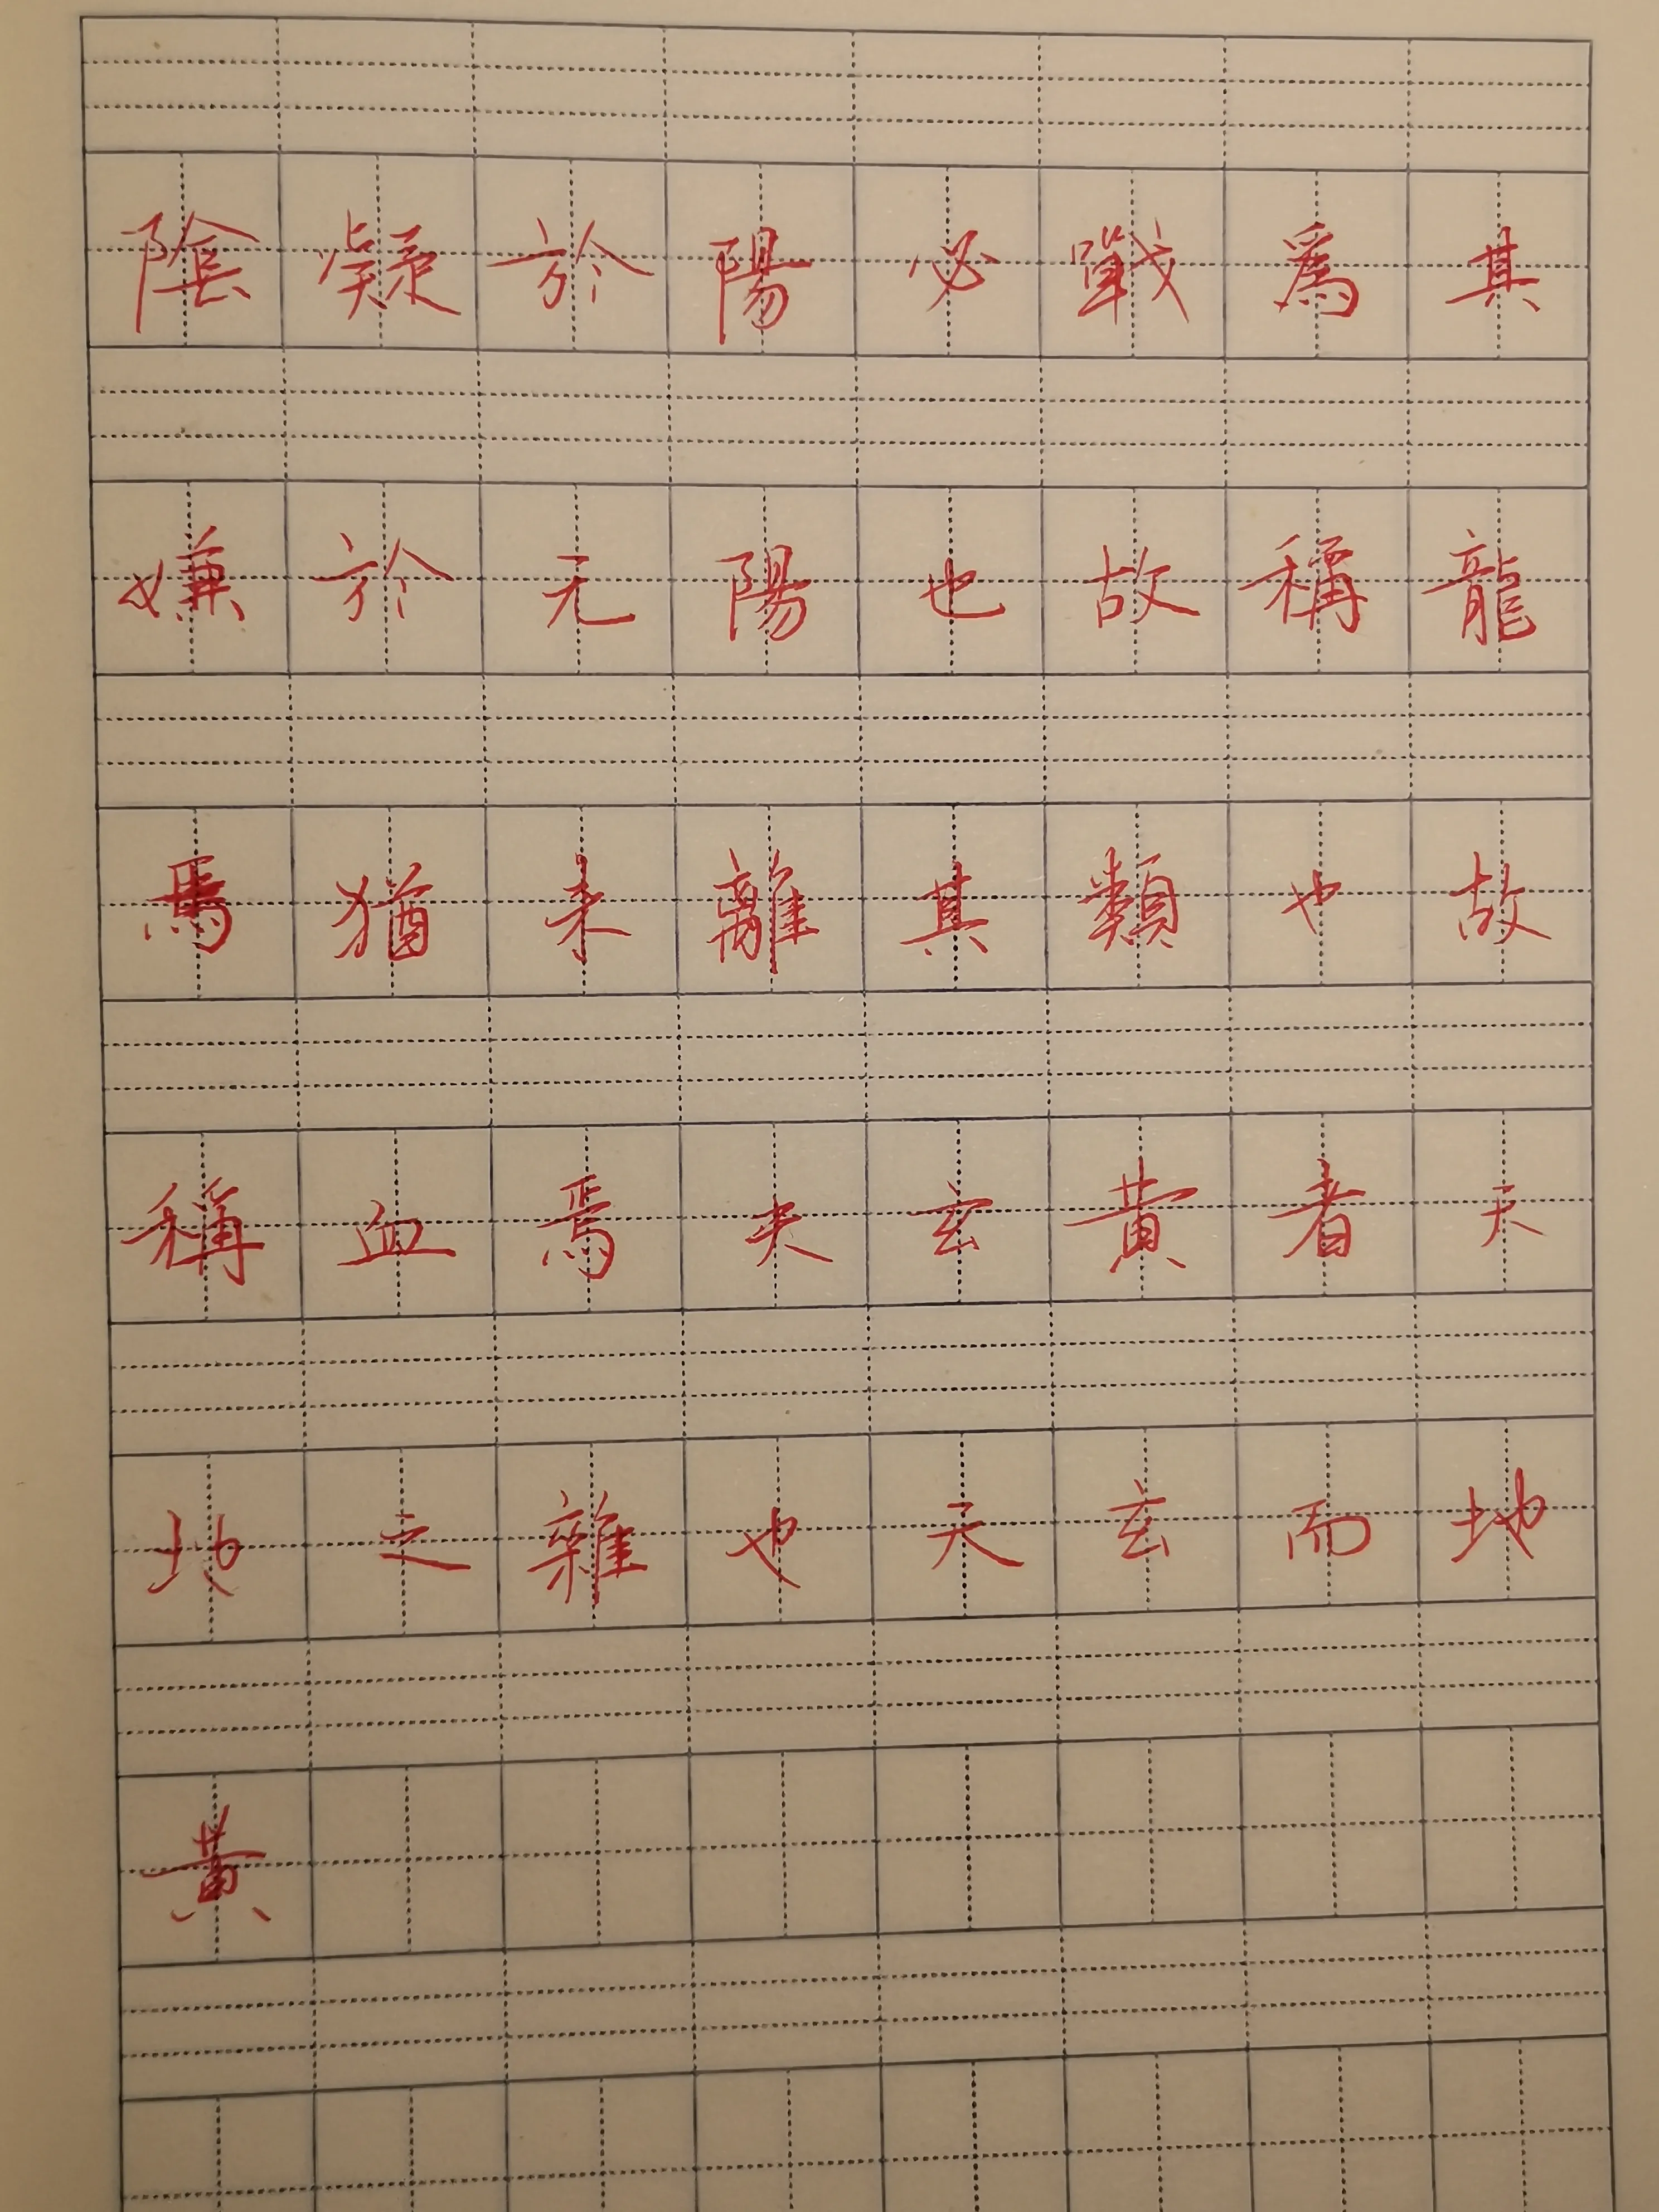 陰凝於陽必戰爲其
嫌於无陽也故稱龍
焉猶未離其類也故
稱血焉夫玄黃者天
地之雜也天玄而地
黃